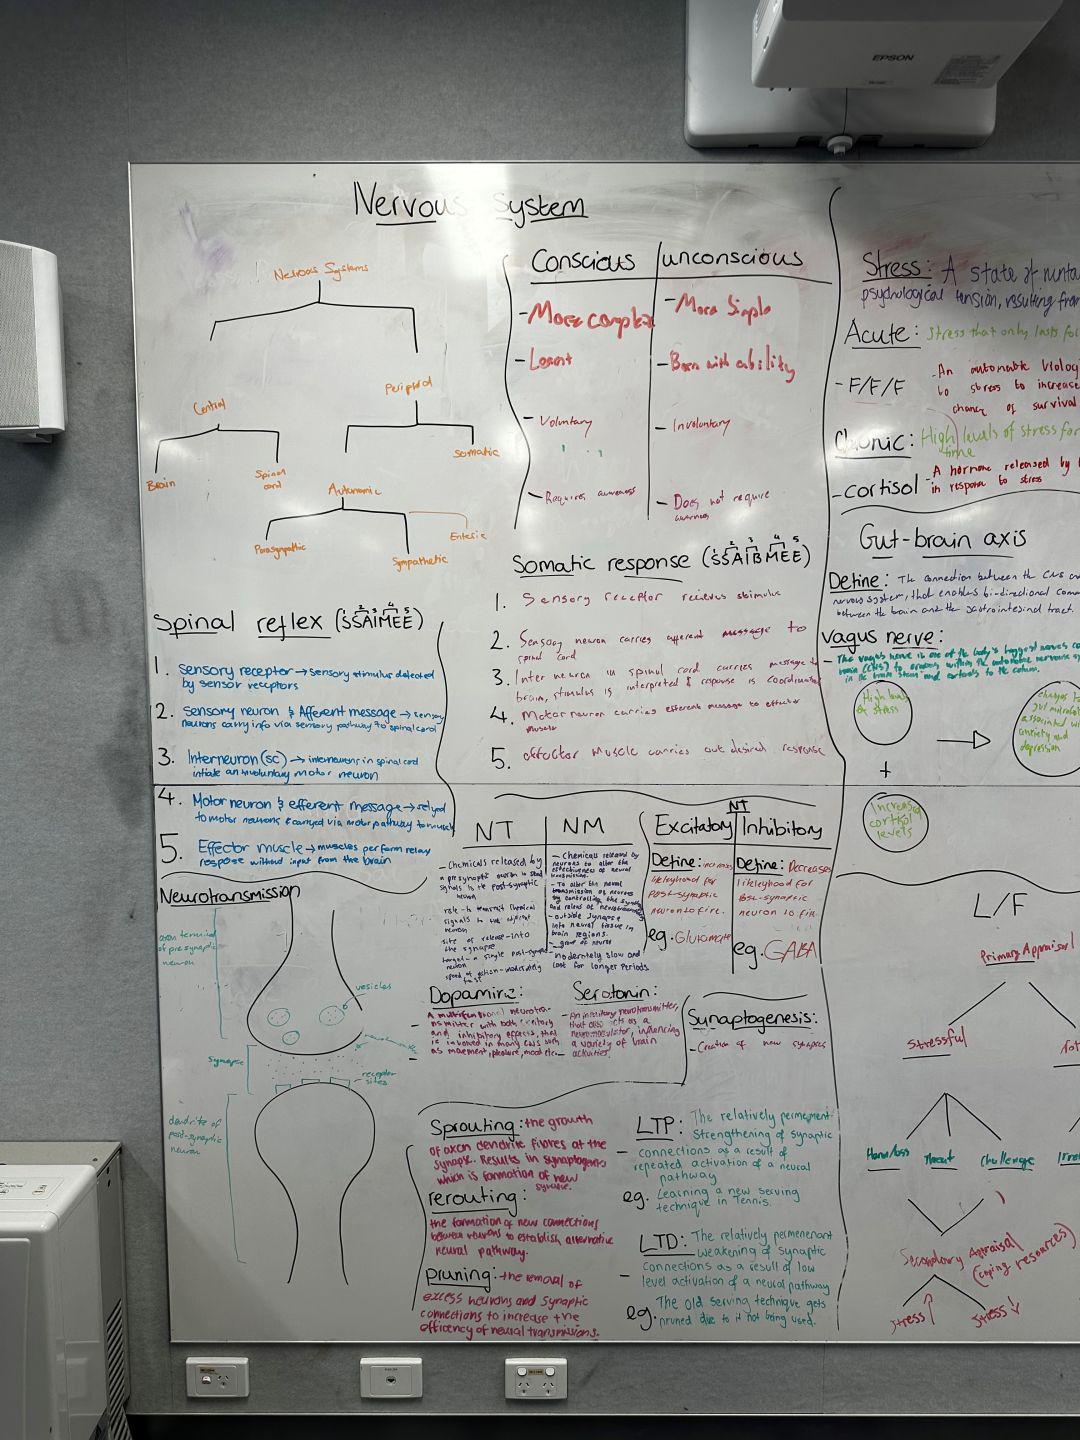 EPSON
Nervous System
Nervous Systems
Central
Peripheral
Brain
Spinal
cord
Autonomic
Somatic
Parasympathetic
Sympathetic
Enteric
Conscious
unconscious
- More complex
- More Simple
- Learnt
- Born with ability
- Voluntary
- Involuntary
- Requires awareness
- Does not require
awareness
Spinal reflex (SSAIMEE)
1 2 3 4 5
1. Sensory receptor → sensory stimulus detected
by sensor receptors
2. Sensory neuron & Afferent message → sensory
neurons carry info via sensory pathway to spinal cord
3. Interneuron (SC) → interneurons in spinal cord
intiate an involuntary motor neuron
4. Motor neuron & efferent message → relyed
to motor neurons & carryed via motor pathway to muscle
5. Effector muscle → muscles perform relay
response without input from the brain
Somatic response (SSAIBMEE)
1 2 3 4 5
1. Sensory receptor recieves stimulus
2. Sensory neuron carries afferent message to
spinal cord
3. Inter neuron in spinal cord carries message to
brain, stimulus is interpreted & response is coordinated
4. Motor neuron carries efferent message to effector
muscle
5. effector muscle carries out desired response
Neurotransmission
axon terminal
of presynaptic
neuron
vesicles
Synapse
receptor
sites
dendrite of
post-synaptic
neuron
NT
- Chemicals released by
a presynaptic neuron to send
signals to the post-synaptic
neuron
role - to transmit chemical
signals to the adjacent
neuron
site of release - into
the synapse
target - a single post-synaptic
neuron
speed of action - moderately
fast
NM
- Chemicals released by
neurons to alter the
effectiveness of neural
transmission.
- To alter the neural
transmission of neurons
by controlling the synthesis
and release of neurotransmitters
- outside synapse
into neural tissue in
brain regions.
- group of neurons
- moderately slow and
last for longer periods.
NT
Excitatory
Inhibitory
Define: increases
likelyhood for
post-synaptic
neuron to fire.
eg. Glutamate
Define: Decreases
likelyhood for
post-synaptic
neuron to fire.
eg. GABA
Dopamine:
- A multifunctional neurotra-
nsmitter with both excitatory
and inhibitory effects, that
is involved in many CNS such
as movement, pleasure, mood etc.
Serotonin:
- An inhibitory neurotransmitter,
that also acts as a
neuromodulator, influencing
a variety of brain
activities.
Synaptogenesis:
- Creation of new synapses
Sprouting: the growth
of axon dendrite fibres at the
synapse. Results in synaptogenesis
which is formation of new
synapse.
rerouting:
the formation of new connections
between neurons to establish alternative
neural pathway.
pruning: the removal of
excess neurons and synaptic
connections to increase the
efficency of neural transmissions.
LTP: The relatively permement
Strengthening of synaptic
- connections as a result of
repeated activation of a neural
pathway
eg. Learning a new serving
technique in Tennis.
LTD: The relatively permenenant
weakening of synaptic
- connections as a result of low
level activation of a neural pathway
eg. The old serving technique gets
pruned due to it not being used.
Stress: A state of
psychological tension, resulting from
Acute: Stress that only lasts for
- F/F/F
- An automatic
to stress to increase
chance of survival
Chronic: High levels of stress for
time
- cortisol
- A hormone released by
in response to stress
Gut-brain axis
Define: The connection between the CNS and
nervous system, that enables bi-directional
between the brain and the gastrointestinal tract.
Vagus nerve:
- The vagus nerve is one of the body's biggest nerves
brain (CNS) to organs within the autonomic nervous
in the brain stem and extends to the colon.
High
of stress
+
Increased
cortisol
levels
changes
gut microbiota
associated
anxiety and
depression
L/F
Primary Appraisal
Stressful
Harm/loss
Threat
Challenge
Secondary Appraisal
(coping resources)
Stress ↑
Stress ↓